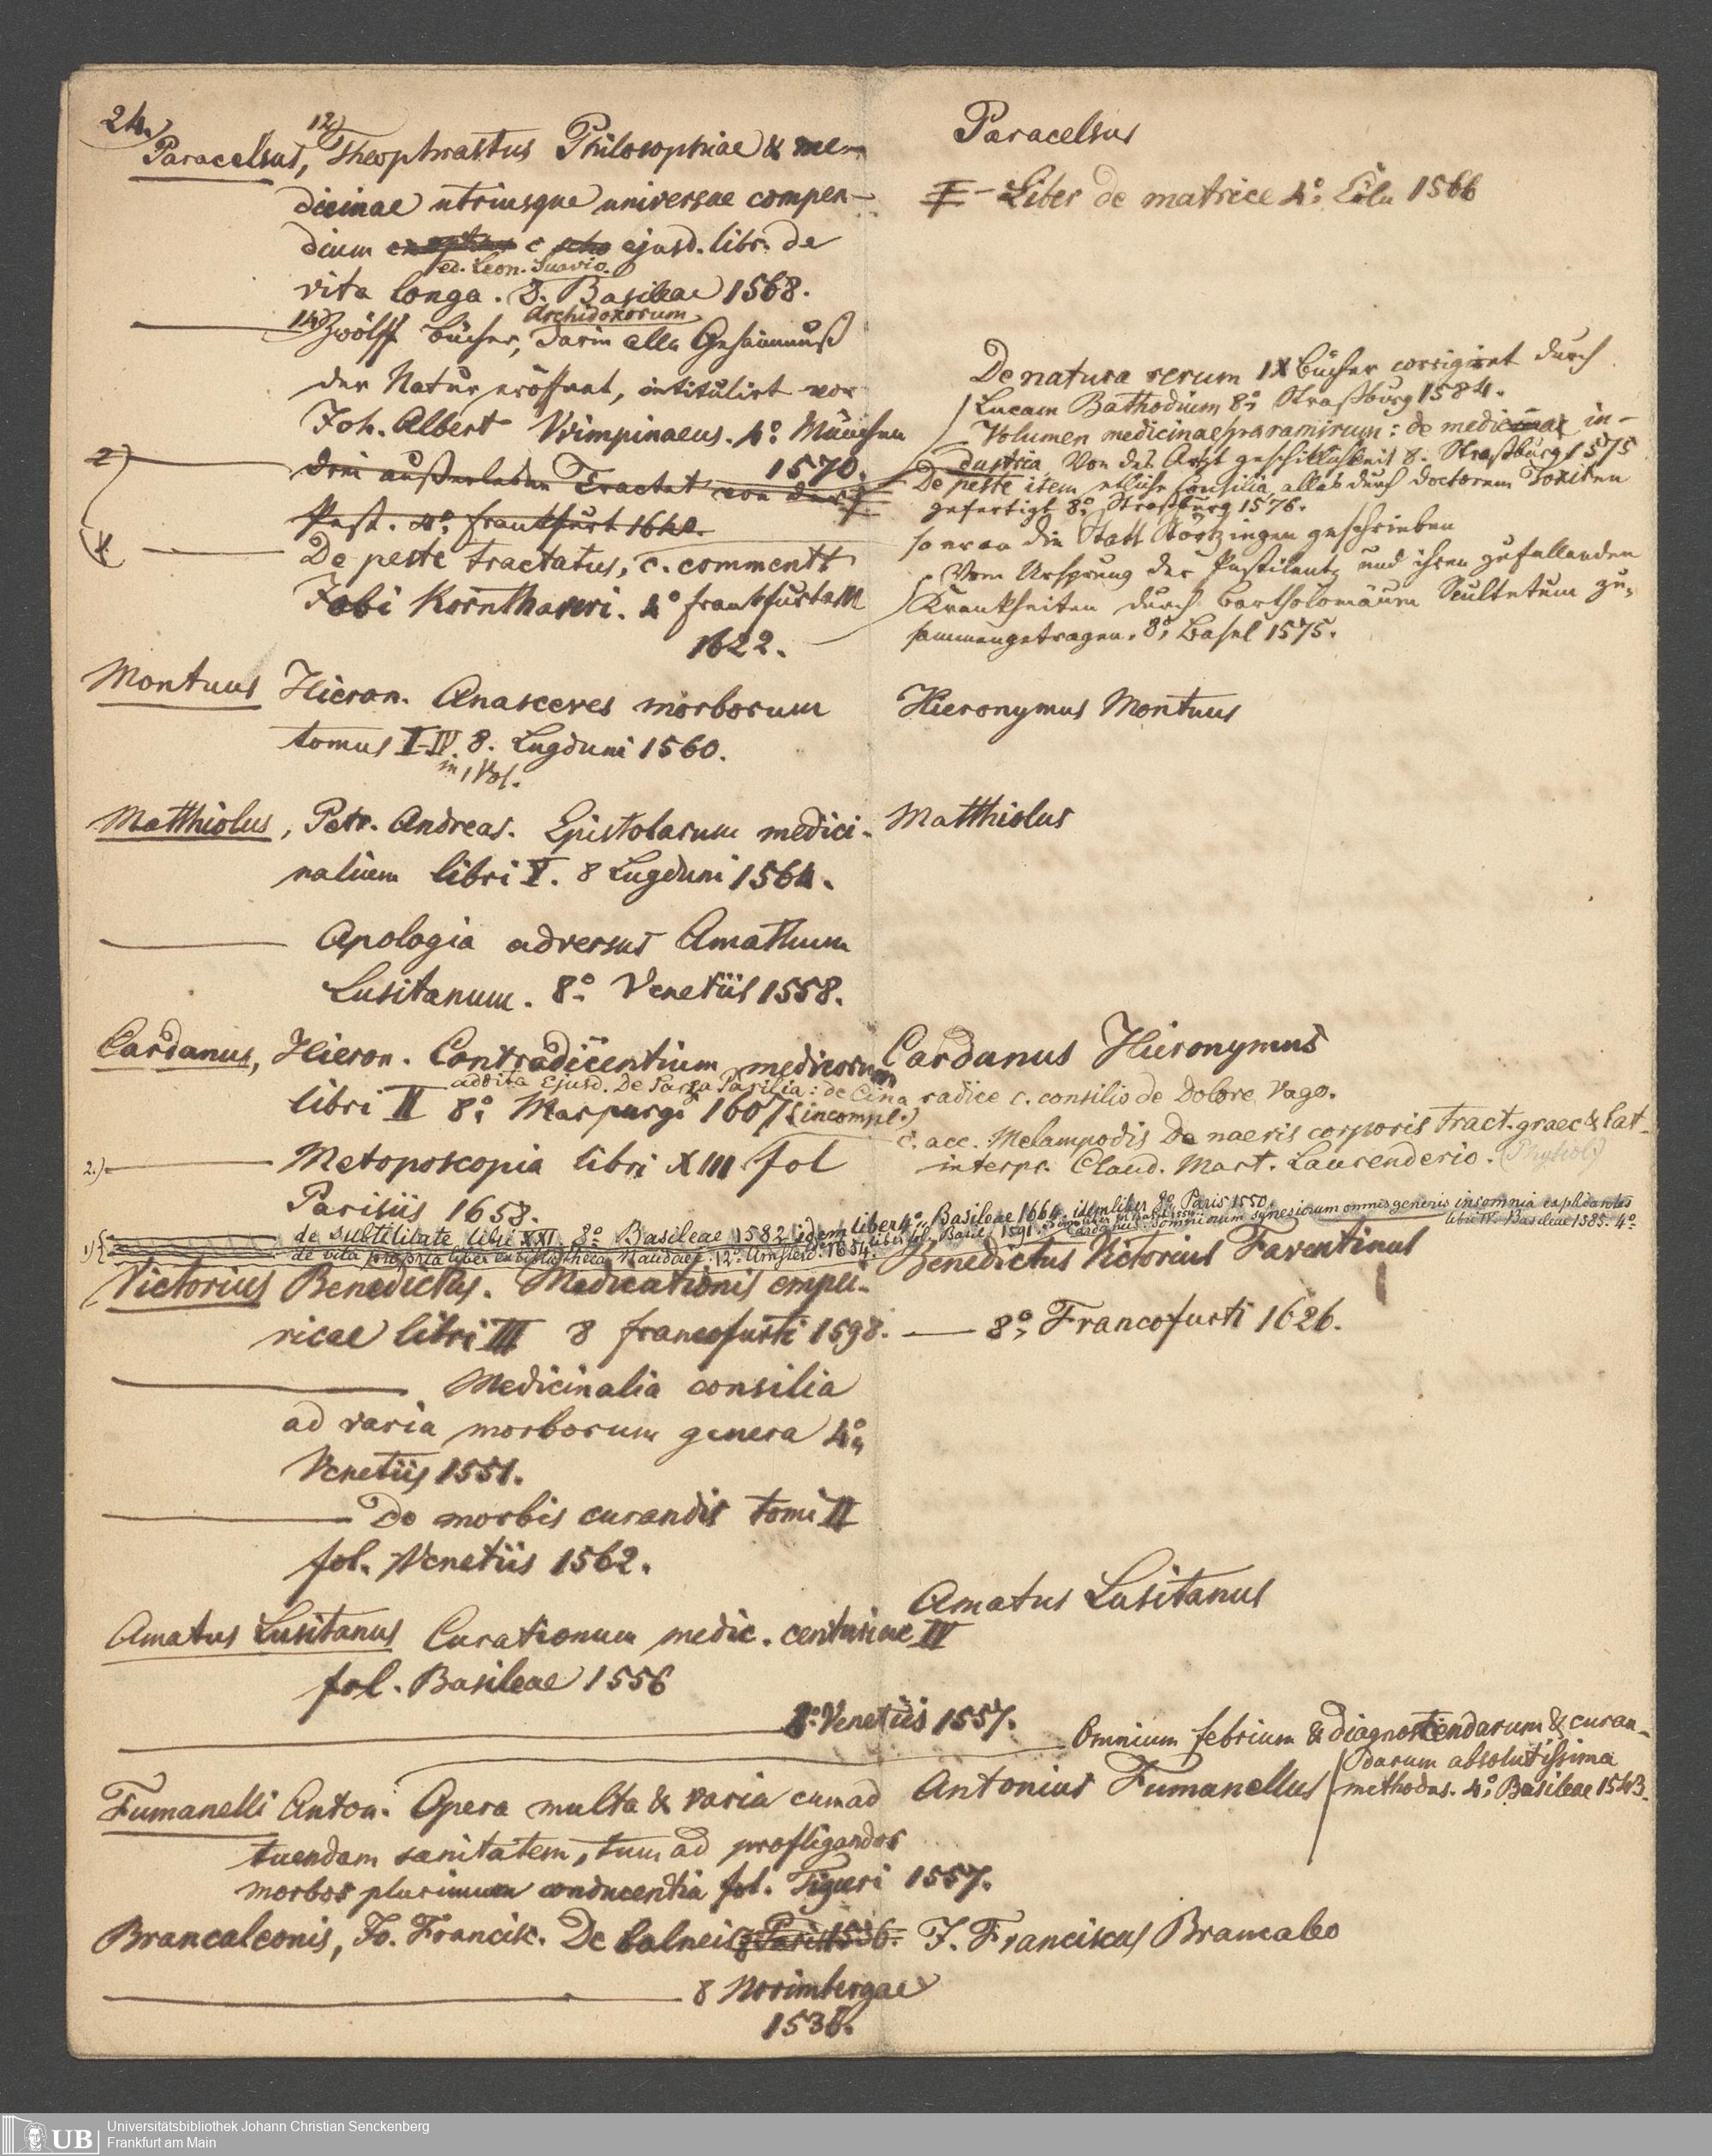 24.)
12)
Paracelsus, Theophrastus Philosophiae & me-
dicinae utriusque universae compen-
dium c ejusd. libr. de
ed. Leon. Suavio.
vita longa. 8. Basileae 1568.
Archidoxorum
14) Zwölff Bücher, darin alle Gehaimnuß
der Natur eröffnet, intitulirt von
Joh. Albert Wimpinaeus. 4° München
1570.
2)
drei außerlesene Tractat von der
Pest. 4° Frankfurt 1640.
De peste tractatus, c. commentt
Jobi Kornthaueri. 4° Frankfurt a M
1622.
Montuus Hieron. Anasceves morborum
tomus I-IV. 8. Lugduni 1560.
in 1 Vol.
Matthiolus, Petr. Andreas. Epistolarum medici-
nalium libri V. 8 Lugduni 1564.
Apologia adversus Amathum
Lusitanum. 8° Venetiis 1558.
Cardanus, Hieron. Contradicentium medicorum
addita ejusd. De Sarza Parilia: de Cina radice c. consilio de Dolore vago.
libri II 8° Marpurgi 1607 (incompl.)
2.) Metoposcopia libri XIII fol
Parisiis 1658.
1) de subtilitate libri XXI. 8° Basileae 1582 idem liber 4° Basileae 1664. idem liber 8° Paris 1550.
de vita propria liber ex bibliotheca Naudaei. 12° Amsterd. 1654.
Victorius Benedictus. Medicationis empi-
ricae libri III 8 Francofurti 1598. — 8° Francofurti 1626.
Medicinalia consilia
ad varia morborum genera 4°
Venetiis 1551.
De morbis curandis tomi II
fol. Venetiis 1562.
Amatus Lusitanus Curationum medic. centuriae IV
fol. Basileae 1556
8° Venetiis 1557.
Fumanelli Anton. Opera multa & varia cum ad
tuendam sanitatem, tum ad profligandos
morbos plurimum conducentia fol. Tiguri 1557.
Brancaleonis, Jo. Francisc. De balneis 8 Paris 1536.
8 Norimbergae
1536.
Paracelsus
Liber de matrice 4° Cöln 1566
De natura rerum IX Bücher corrigirt durch
Lucam Bathodium 8° Straßburg 1584.
Volumen medicinae paramirum: de medica in-
dustria Von des Arzt geschicklichkeit 8. Straßburg 1575
De peste item etliche Consilia, alles durch doctorem Toxiten
gefertigt 8° Straßburg 1576.
so er an die Statt Störtzingen geschrieben
Vom Ursprung der Pestilentz und ihren zufallenden
Krankheiten durch Bartholomäum Scultetum zu-
sammengetragen. 8° Basel 1575.
Hieronymus Montuus
Matthiolus
Cardanus Hieronymus
c. acc. Melampodis De naevis corporis tract. graec & lat
interpr. Claud. Mart. Laurenderio.
Somniorum synesiorum omnis generis insomnia explicantes
libri IV. Basileae 1585. 4°
Benedictus Victorius Faventinus
Amatus Lusitanus
Omnium febrium & diagnoscendarum & curan-
darum absolutissima
methodus. 4° Basileae 1543.
Antonius Fumanellus
J. Franciscus Brancaleo
UB
Universitätsbibliothek Johann Christian Senckenberg
Frankfurt am Main